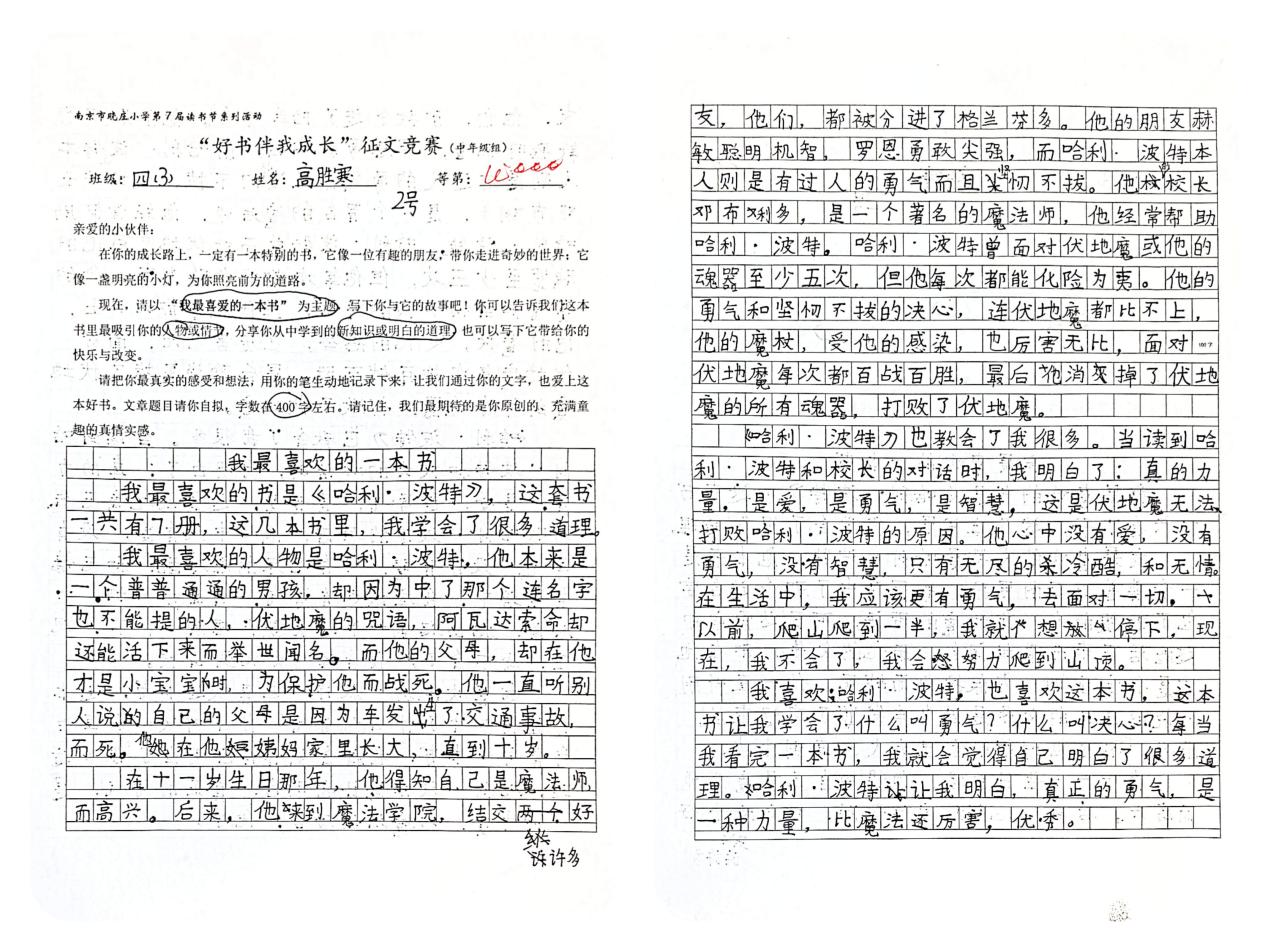 南京市晓庄小学第7届读书节系列活动
“好书伴我成长”征文竞赛(中年级组)
班级:四(3) 姓名:高胜寒 等第:
2号
亲爱的小伙伴:
在你的成长路上,一定有一本特别的书,它像一位有趣的朋友,带你走进奇妙的世界;它
像一盏明亮的小灯,为你照亮前方的道路。
现在,请以“我最喜爱的一本书”为主题,写下你与它的故事吧!你可以告诉我们这本
书里最吸引你的人物或情节,分享你从中学到的新知识或明白的道理,也可以写下它带给你的
快乐与改变。
请把你最真实的感受和想法,用你的笔生动地记录下来,让我们通过你的文字,也爱上这
本好书。文章题目请你自拟,字数在400字左右。请记住,我们最期待的是你原创的、充满童
趣的真情实感。
我最喜欢的一本书
我最喜欢的书是《哈利·波特》,这套书
一共有7册,这几本书里,我学会了很多道理。
我最喜欢的人物是哈利·波特,他本来是
一个普普通通的男孩,却因为中了那个连名字
也不能提的人,伏地魔的咒语,阿瓦达索命却
还能活下来而举世闻名。而他的父母,却在他
才是小宝宝时,为保护他而战死。他一直听别
人说的自己的父母是因为车发生了交通事故,
而死。他在他姨妈家里长大,直到十岁。
在十一岁生日那年,他得知自己是魔法师
而高兴。后来,他来到魔法学院,结交两个好
许许多
友,他们,都被分进了格兰芬多。他的朋友赫
敏聪明机智,罗恩勇敢尖强,而哈利·波特本
人则是有过人的勇气而且坚忉不拔。他的校长
邓布利多,是一个著名的魔法师,他经常帮助
哈利·波特。哈利·波特曾面对伏地魔或他的
魂器至少五次,但他每次都能化险为夷。他的
勇气和坚忉不拔的决心,连伏地魔都比不上,
他的魔杖,受他的感染,也厉害无比,面对
伏地魔每次都百战百胜,最后他消灭掉了伏地
魔的所有魂器,打败了伏地魔。
《哈利·波特》也教会了我很多。当读到哈
利·波特和校长的对话时,我明白了:真的力
量,是爱,是勇气,是智慧,这是伏地魔无法
打败哈利·波特的原因。他心中没有爱,没有
勇气,没有智慧,只有无尽的杀冷酷,和无情。
在生活中,我应该更有勇气,去面对一切。
以前,爬山爬到一半,我就想放停下,现
在,我不会了,我会努力爬到山顶。
我喜欢哈利·波特,也喜欢这本书,这本
书让我学会了什么叫勇气?什么叫决心?每当
我看完一本书,我就会觉得自己明白了很多道
理。哈利·波特让让我明白,真正的勇气,是
一种力量,比魔法还厉害,优秀。